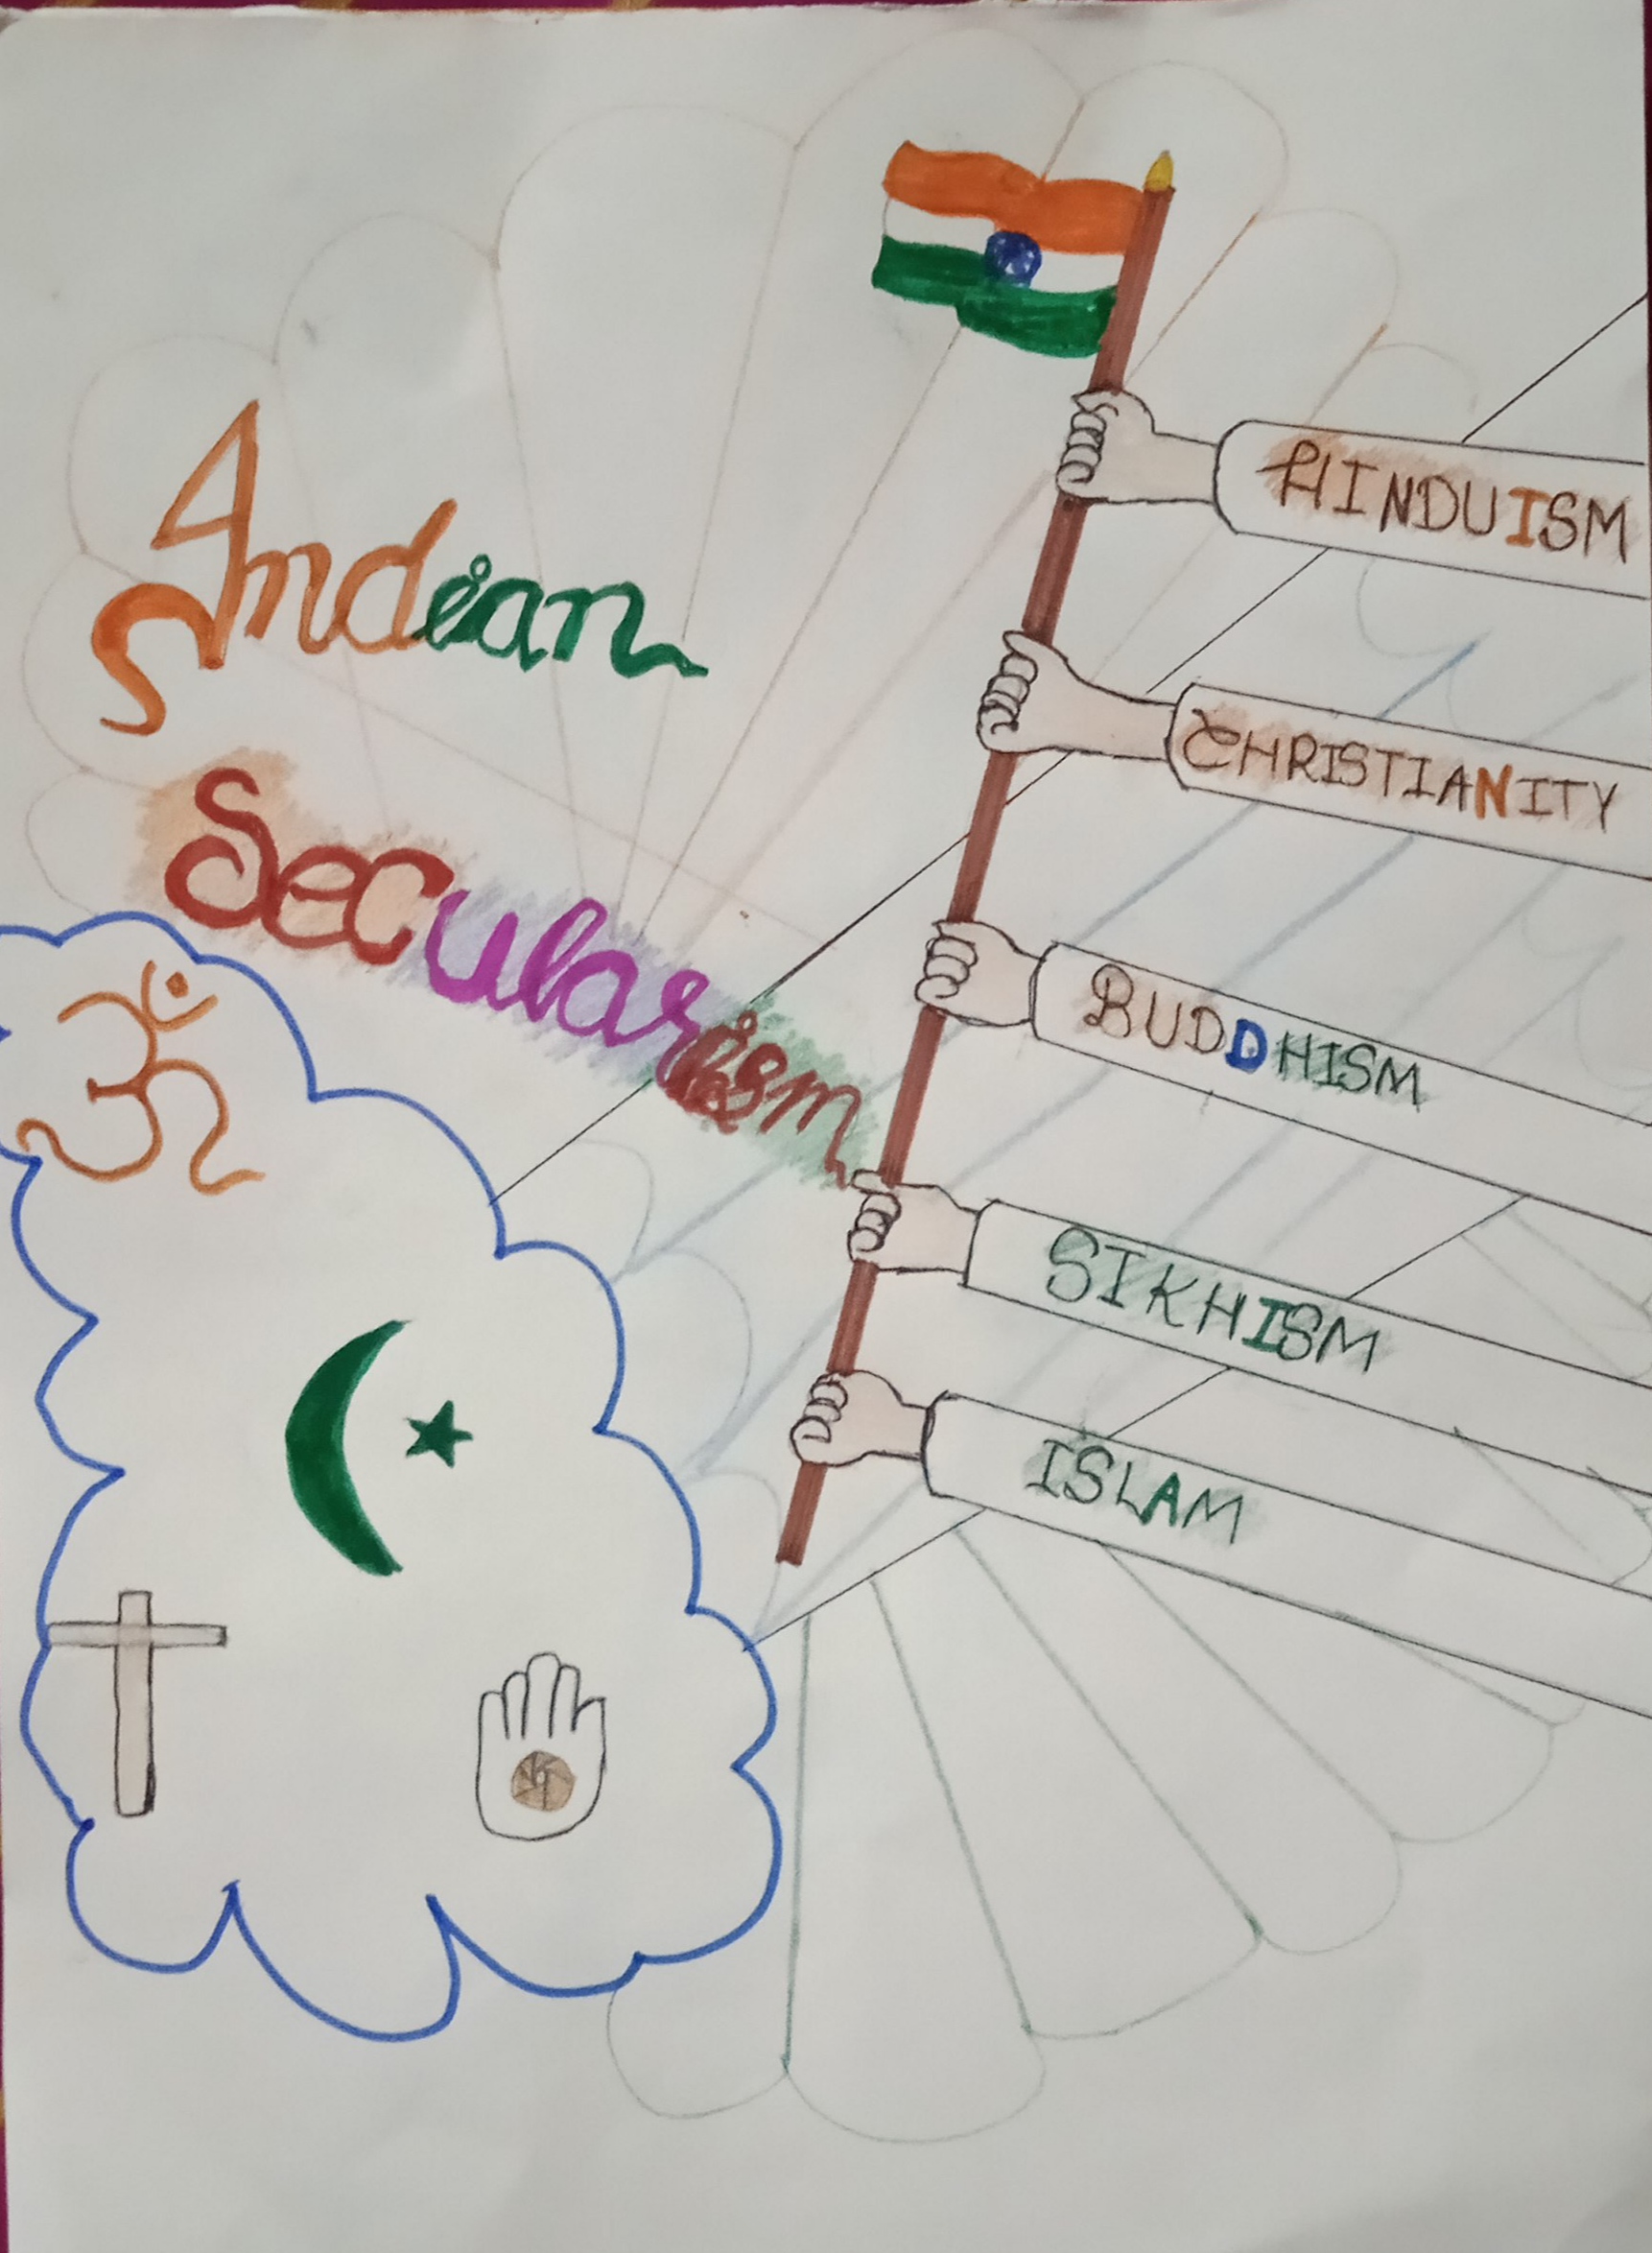 Indian
Secularism
HINDUISM
CHRISTIANITY
BUDDHISM
SIKHISM
ISLAM
ॐ